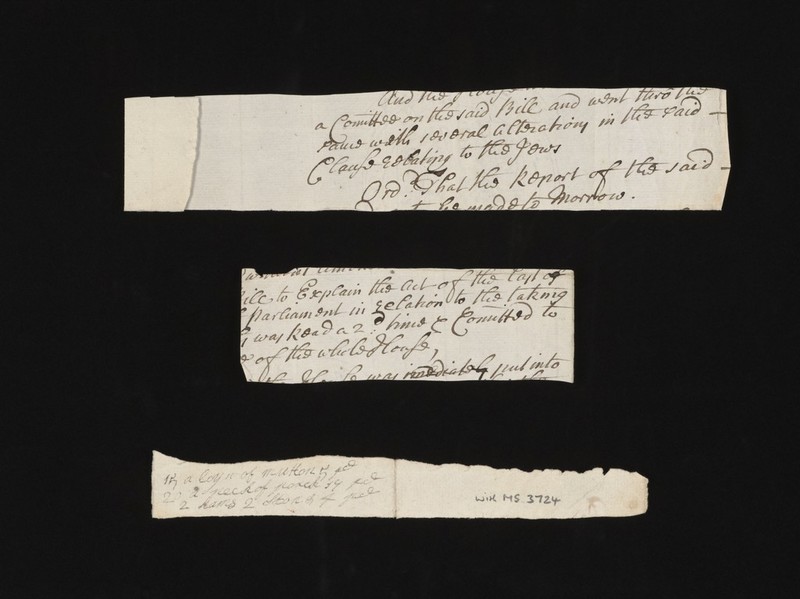 And the House
a Comittee on the said Bill and went thro the
same with several alterations in the said
Clause relating to the Jews
Ord.d That the Report of the said
be made to Morrow.
Bill to Explain the act of the last of
Parliament in relation to the taking
was Read a 2.d time & Comitted to
of the whole House,
the House was imediately put into
a loyn of mutton
2
2 hands 2 Ston &
WIH MS 3724